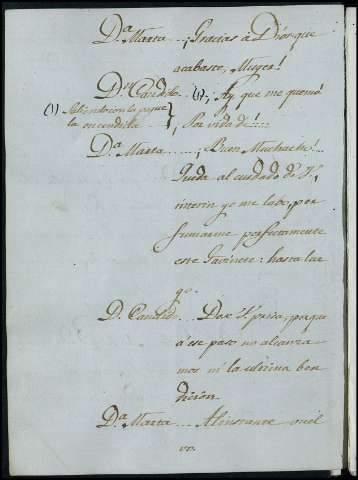 Dª Marta...¡Gracias à Dios que
acabaste, Muger!
Dⁿ Candido. (1) ¡Ay que me quemó
(1) Saliendo con la
la encendida
¡Por vida de!...
Dª Marta.....¡Buen Muchacho!..
Queda al cuidado de V,
interin yo me labo, per
fumarme perfectamente
este Gavinete: hasta lue
go.
D. Candid... Dese V. prisa, porque
á ese paso no alcanza
mos ni la última ben
dición.
Dª Marta... Alinstante buel
vo.